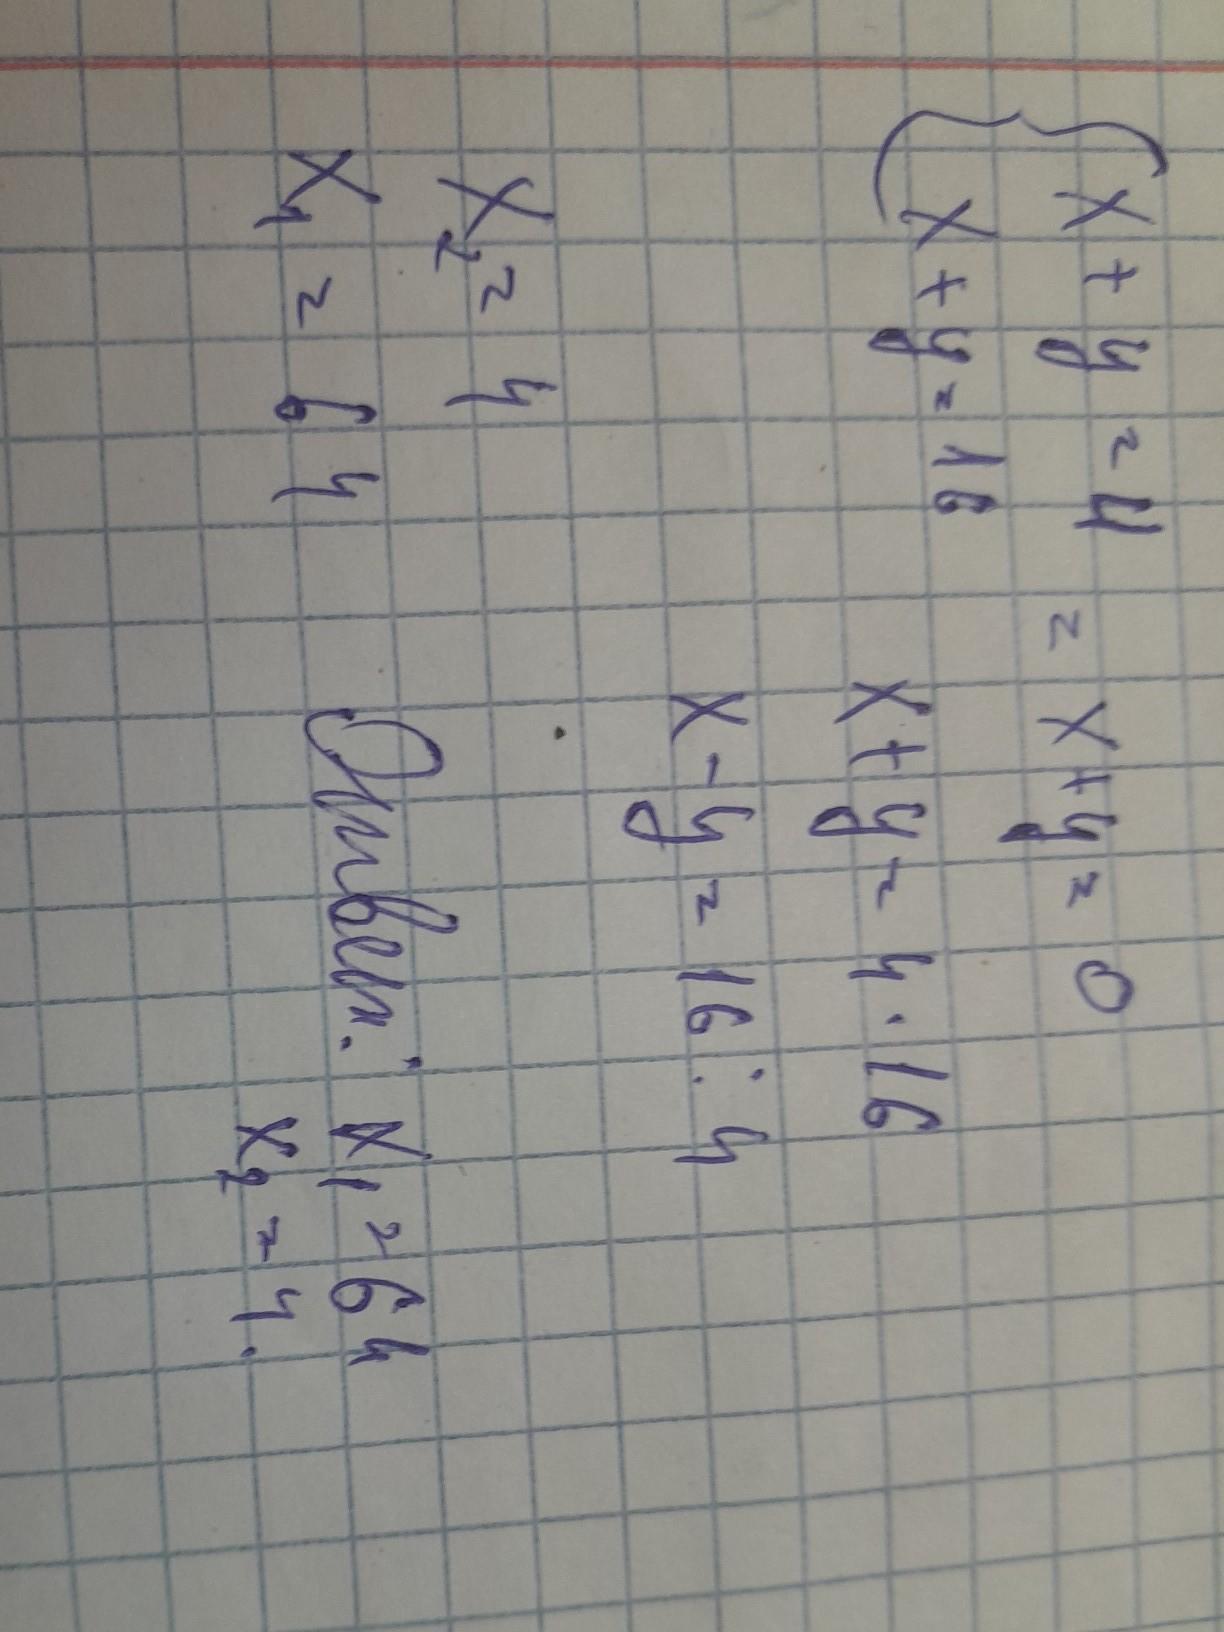 { x + y = 4 = x + y = 0
x + y = 16
x + y = 4 · 16
x - y = 16 : 4
x₂ = 4
x₁ = 64
Ответ: x₁ = 64
x₂ = 4.